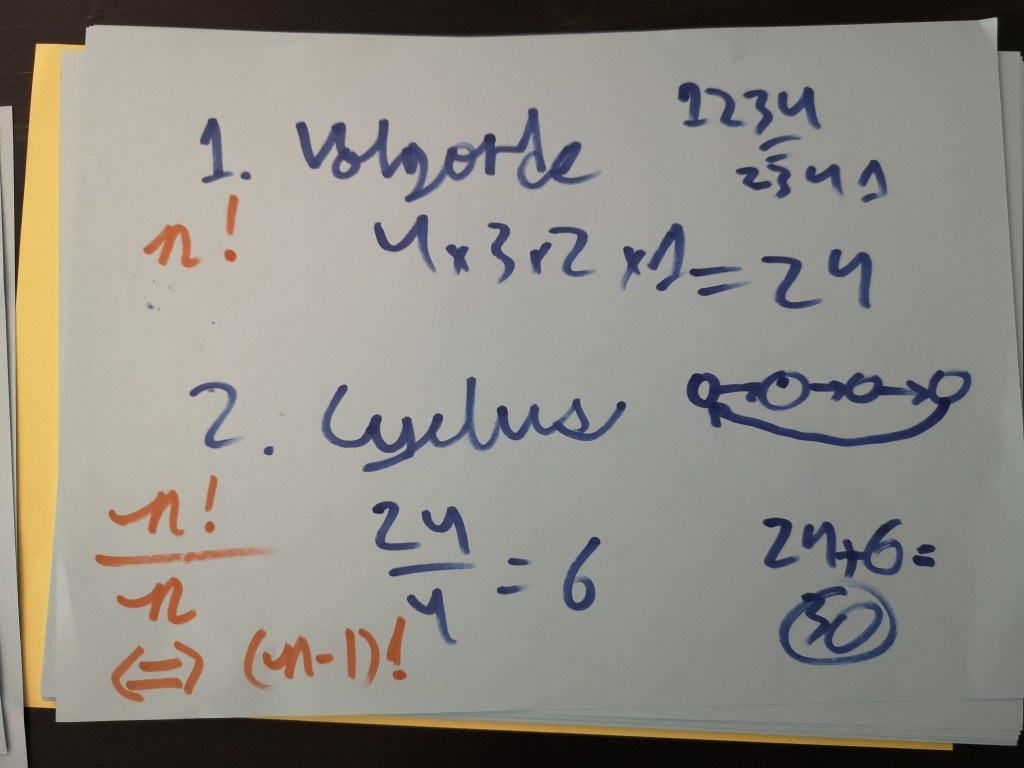 1. Volgorde
1234
2341
n!
4x3x2x1=24
2. Cyclus
n!
n
24
4
= 6
24+6=
30
(=) (n-1)!